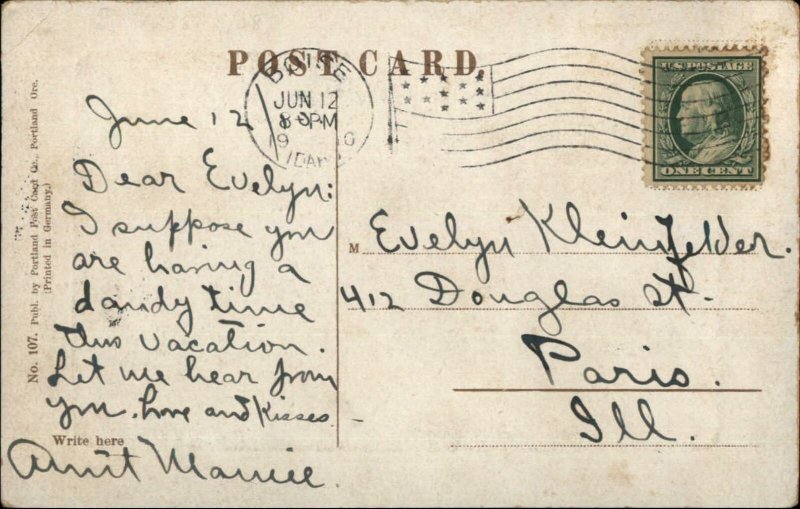 POST CARD
BOISE
JUN 12
8 PM
19 0
IDAHO
U.S. POSTAGE
ONE CENT
June 12
Dear Evelyn:
I suppose you
are having a
dandy time
this vacation.
Let me hear from
you. Love and Kisses
Aunt Mamie.
M Evelyn Kleinfelder.
412 Douglas St.
Paris.
Ill.
Write here
No. 107. Publ. by Portland Post Card Co., Portland Ore.
(Printed in Germany.)